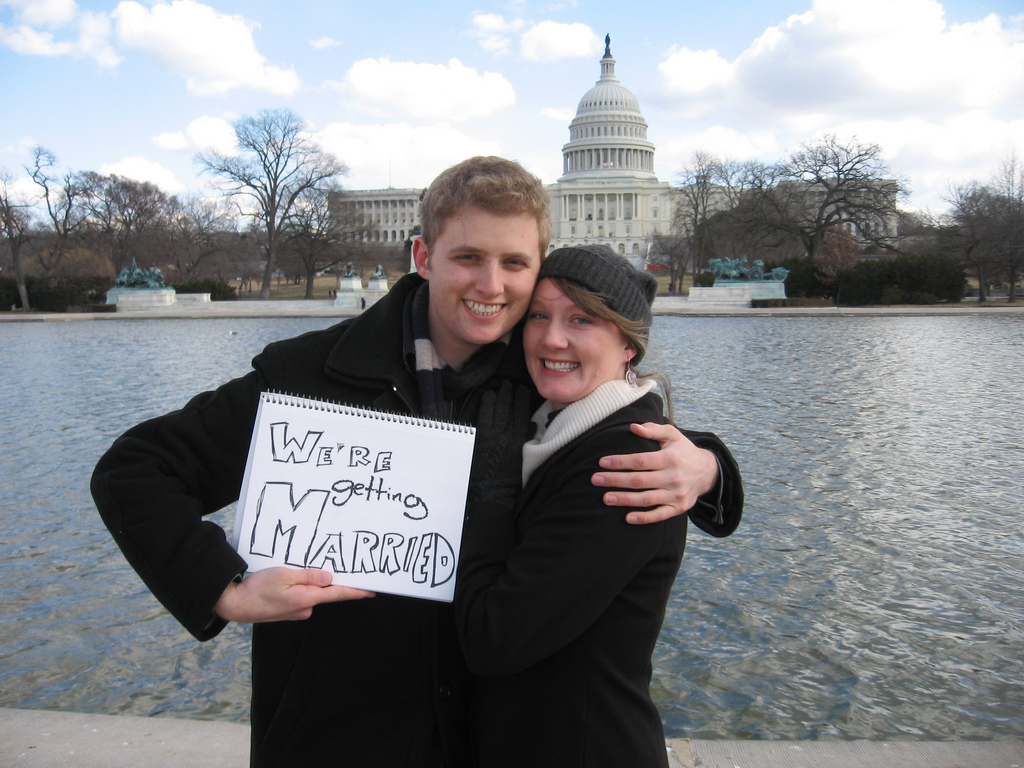 WE'RE
getting
MARRIED